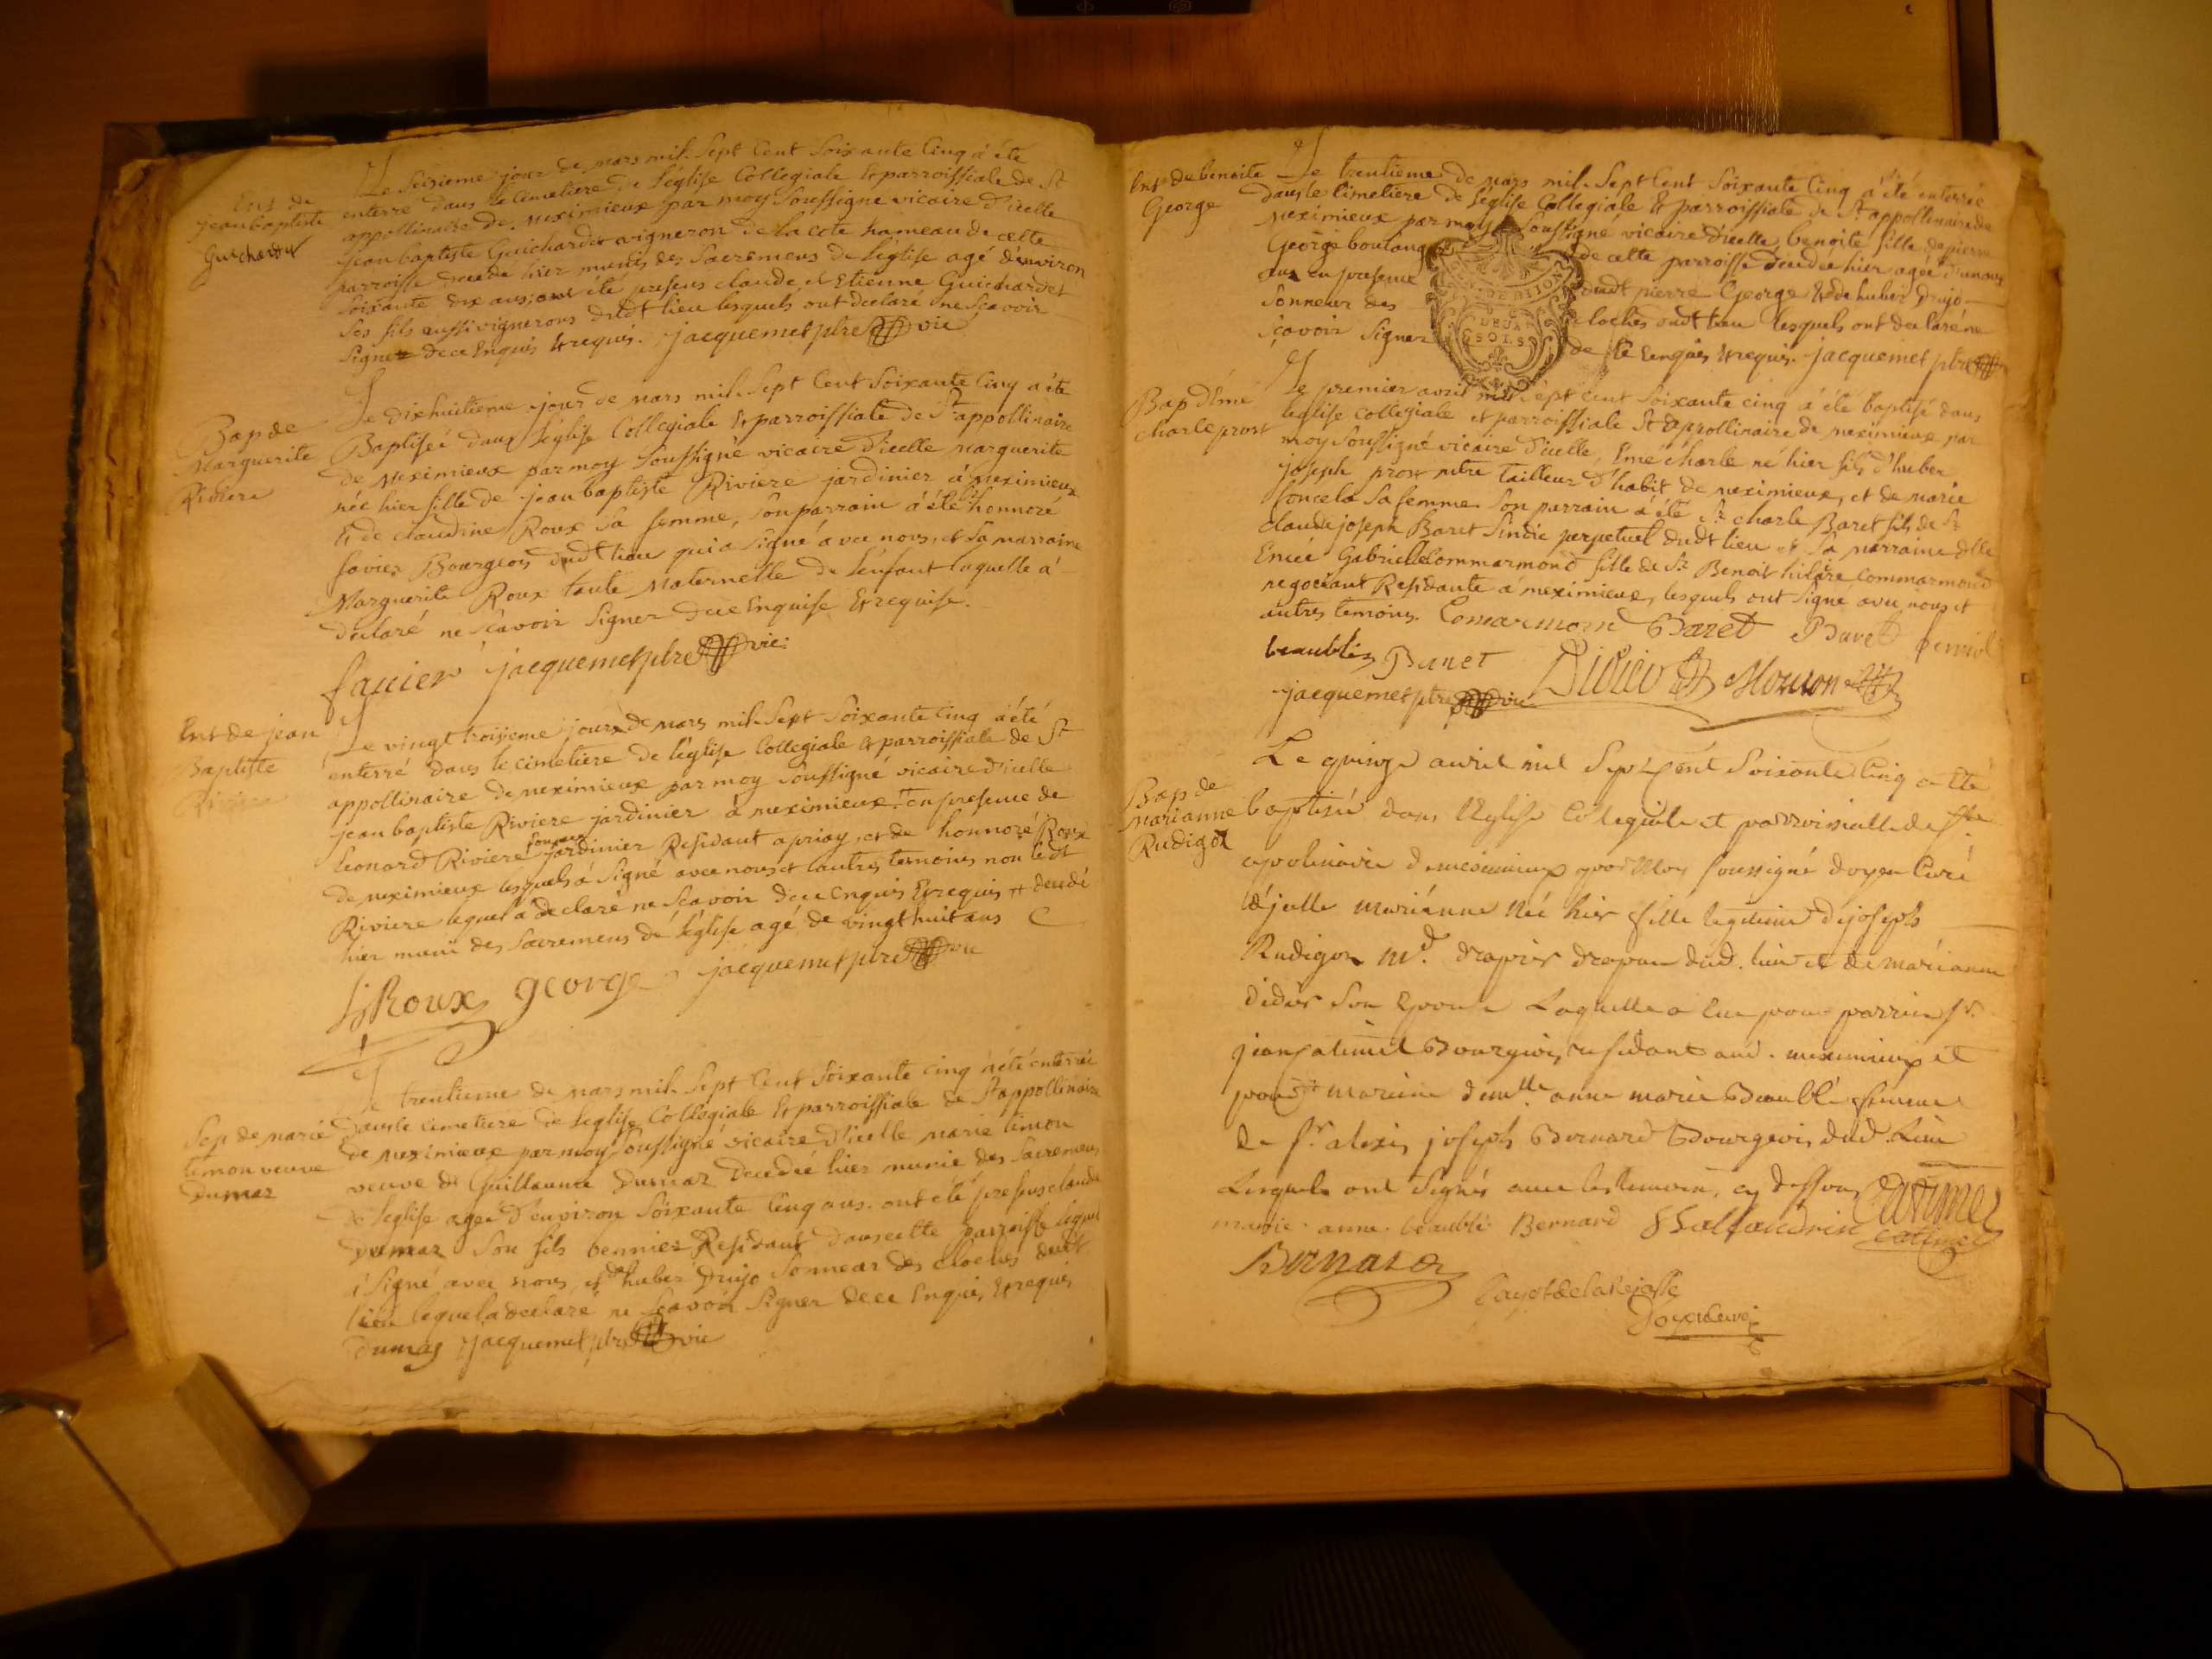 Ent de
jean baptiste
Guichardet
Le Seisieme jour de mars mil Sept Cent Soixante Cinq a été
enterré dans le Cimetiere de l'église Collegiale & parroissiale de St
appollinaire de meximieux par moy Soussigné vicaire d'icelle
jean baptiste Guichardet vigneron de la cote hameau de cette
parroisse decedé hier munis des Sacremens de l'église agé d'environ
Soixante dix ans; ont été presens claude et Etienne Guichardet
Ses fils aussi vignerons dudt lieu lesquels ont declaré ne Scavoir
Signer de ce Enquis & requis. jacquemet ptre vic
Bap de
Marguerite
Riviere
Le dixhuitieme jour de mars mil Sept Cent Soixante Cinq a été
Baptisée dans l'église Collegiale & parroissiale de St appollinaire
de meximieux par moy Soussigné vicaire d'icelle marguerite
née hier fille de jean baptiste Riviere jardinier à meximieux
& de claudine Roux Sa femme, Son parrain à été honnoré
favier Bourgeois dudt lieu qui a Signé avec nous, et Sa marraine
Marguerite Roux tante Maternelle de l'enfant laquelle à
declaré ne Scavoir Signer de ce Enquise & requise.
favier jacquemet ptre vic
Ent de jean
Baptiste
Riviere
Le vingt troisieme jour de mars mil Sept Soixante Cinq à été
enterré dans le cimetiere de l'église Collegiale & parroissiale de St
appollinaire de meximieux par moy Soussigné vicaire d'icelle
jean baptiste Riviere jardinier à meximieux en presence de
leonard Riviere jardinier Residant a priay, et de honnoré Roux
de meximieux lesquels à Signé avec nous et autres temoins non ledt
Riviere lequel a declaré ne Scavoir de ce Enquis & requis + decedé
hier muni des Sacremens de l'église agé de vingt huit ans
hRoux george jacquemet ptre vic
Sep de marie
timon veuve
Dumas
Le trentieme de mars mil Sept Cent Soixante cinq à été enterrée
dans le cimetiere de l'église Collegiale & parroissiale de St appollinaire
de meximieux par moy Soussigné vicaire d'icelle marie timon
veuve de Guillaume Dumas Decedée hier munie des Sacremens
de l'église agée d'environ Soixante Cinq ans. ont été presens claude
Dumas Son fils Residant dans cette parroisse lequel
à Signé avec nous, et de huber Drujo Sonneur des cloches dudt
lieu lequel a declaré ne Scavoir Signer de ce Enquis, & requis
Dumas jacquemet ptre vic
Ent de benoite
George
Le trentieme de mars mil Sept Cent Soixante Cinq à été enterrée
dans le Cimetiere de l'église Collegiale & parroissiale de St appollinaire de
meximieux par moy Soussigné vicaire d'icelle, benoite fille de pierre
George boulanger de cette parroisse decedée hier agée d'un
ans en presence dudt pierre George & de huber Drujo
Sonneur des cloches dudt lieu lesquels ont declaré ne
Scavoir Signer de ce Enquis & requis. jacquemet ptre
GEN. DE DIJON
DEUX
SOLS
Bap d'Emé
charle prost
Le premier avril mil Sept Cent Soixante cinq à été baptisé dans
l'église collegiale et parroissiale St appollinaire de meximieux par
moy Soussigné vicaire d'icelle, Emé charle né hier fils d'huber
joseph prost mtre tailleur d'habit de meximieux, et de marie
Loncela Sa femme. Son parrain à été Sr charle Baret fils de Sr
claude joseph Baret Sindic perpetuel dudt lieu et Sa marraine dlle
Gabrielle Commarmond fille de Sr Benoit hilaire Commarmond
negociant Residante à meximieux, lesquels ont Signé avec nous et
autres temoins. Comarmond Baret Baret
beaublés Didier Mouton
jacquemet ptre vic
Bap de
Marianne
Rudigoz
Le quinze avril mil Sept Cent Soixante Cinq a été
baptisée dans l'Eglise Collegiale et parroissialle de St
apolinaire de meximieux par Moy soussigné doyen Curé
d'jcelle marianne née hier fille legitime de joseph
Rudigoz md. drapier dud. lieu et de marianne
didier Son Epouse Laquelle a Eue pour parrain Sr.
jean catimel Bourgeois residant aud. meximieux et
pour maraine demlle anne marie Beaublé femme
de Sr alexis joseph Bernard Bourgeois dud. Lieu
Lesquels ont Signés avec les temoins cy dessous Catimel
marie anne beaublé Bernard catimel
Bernard